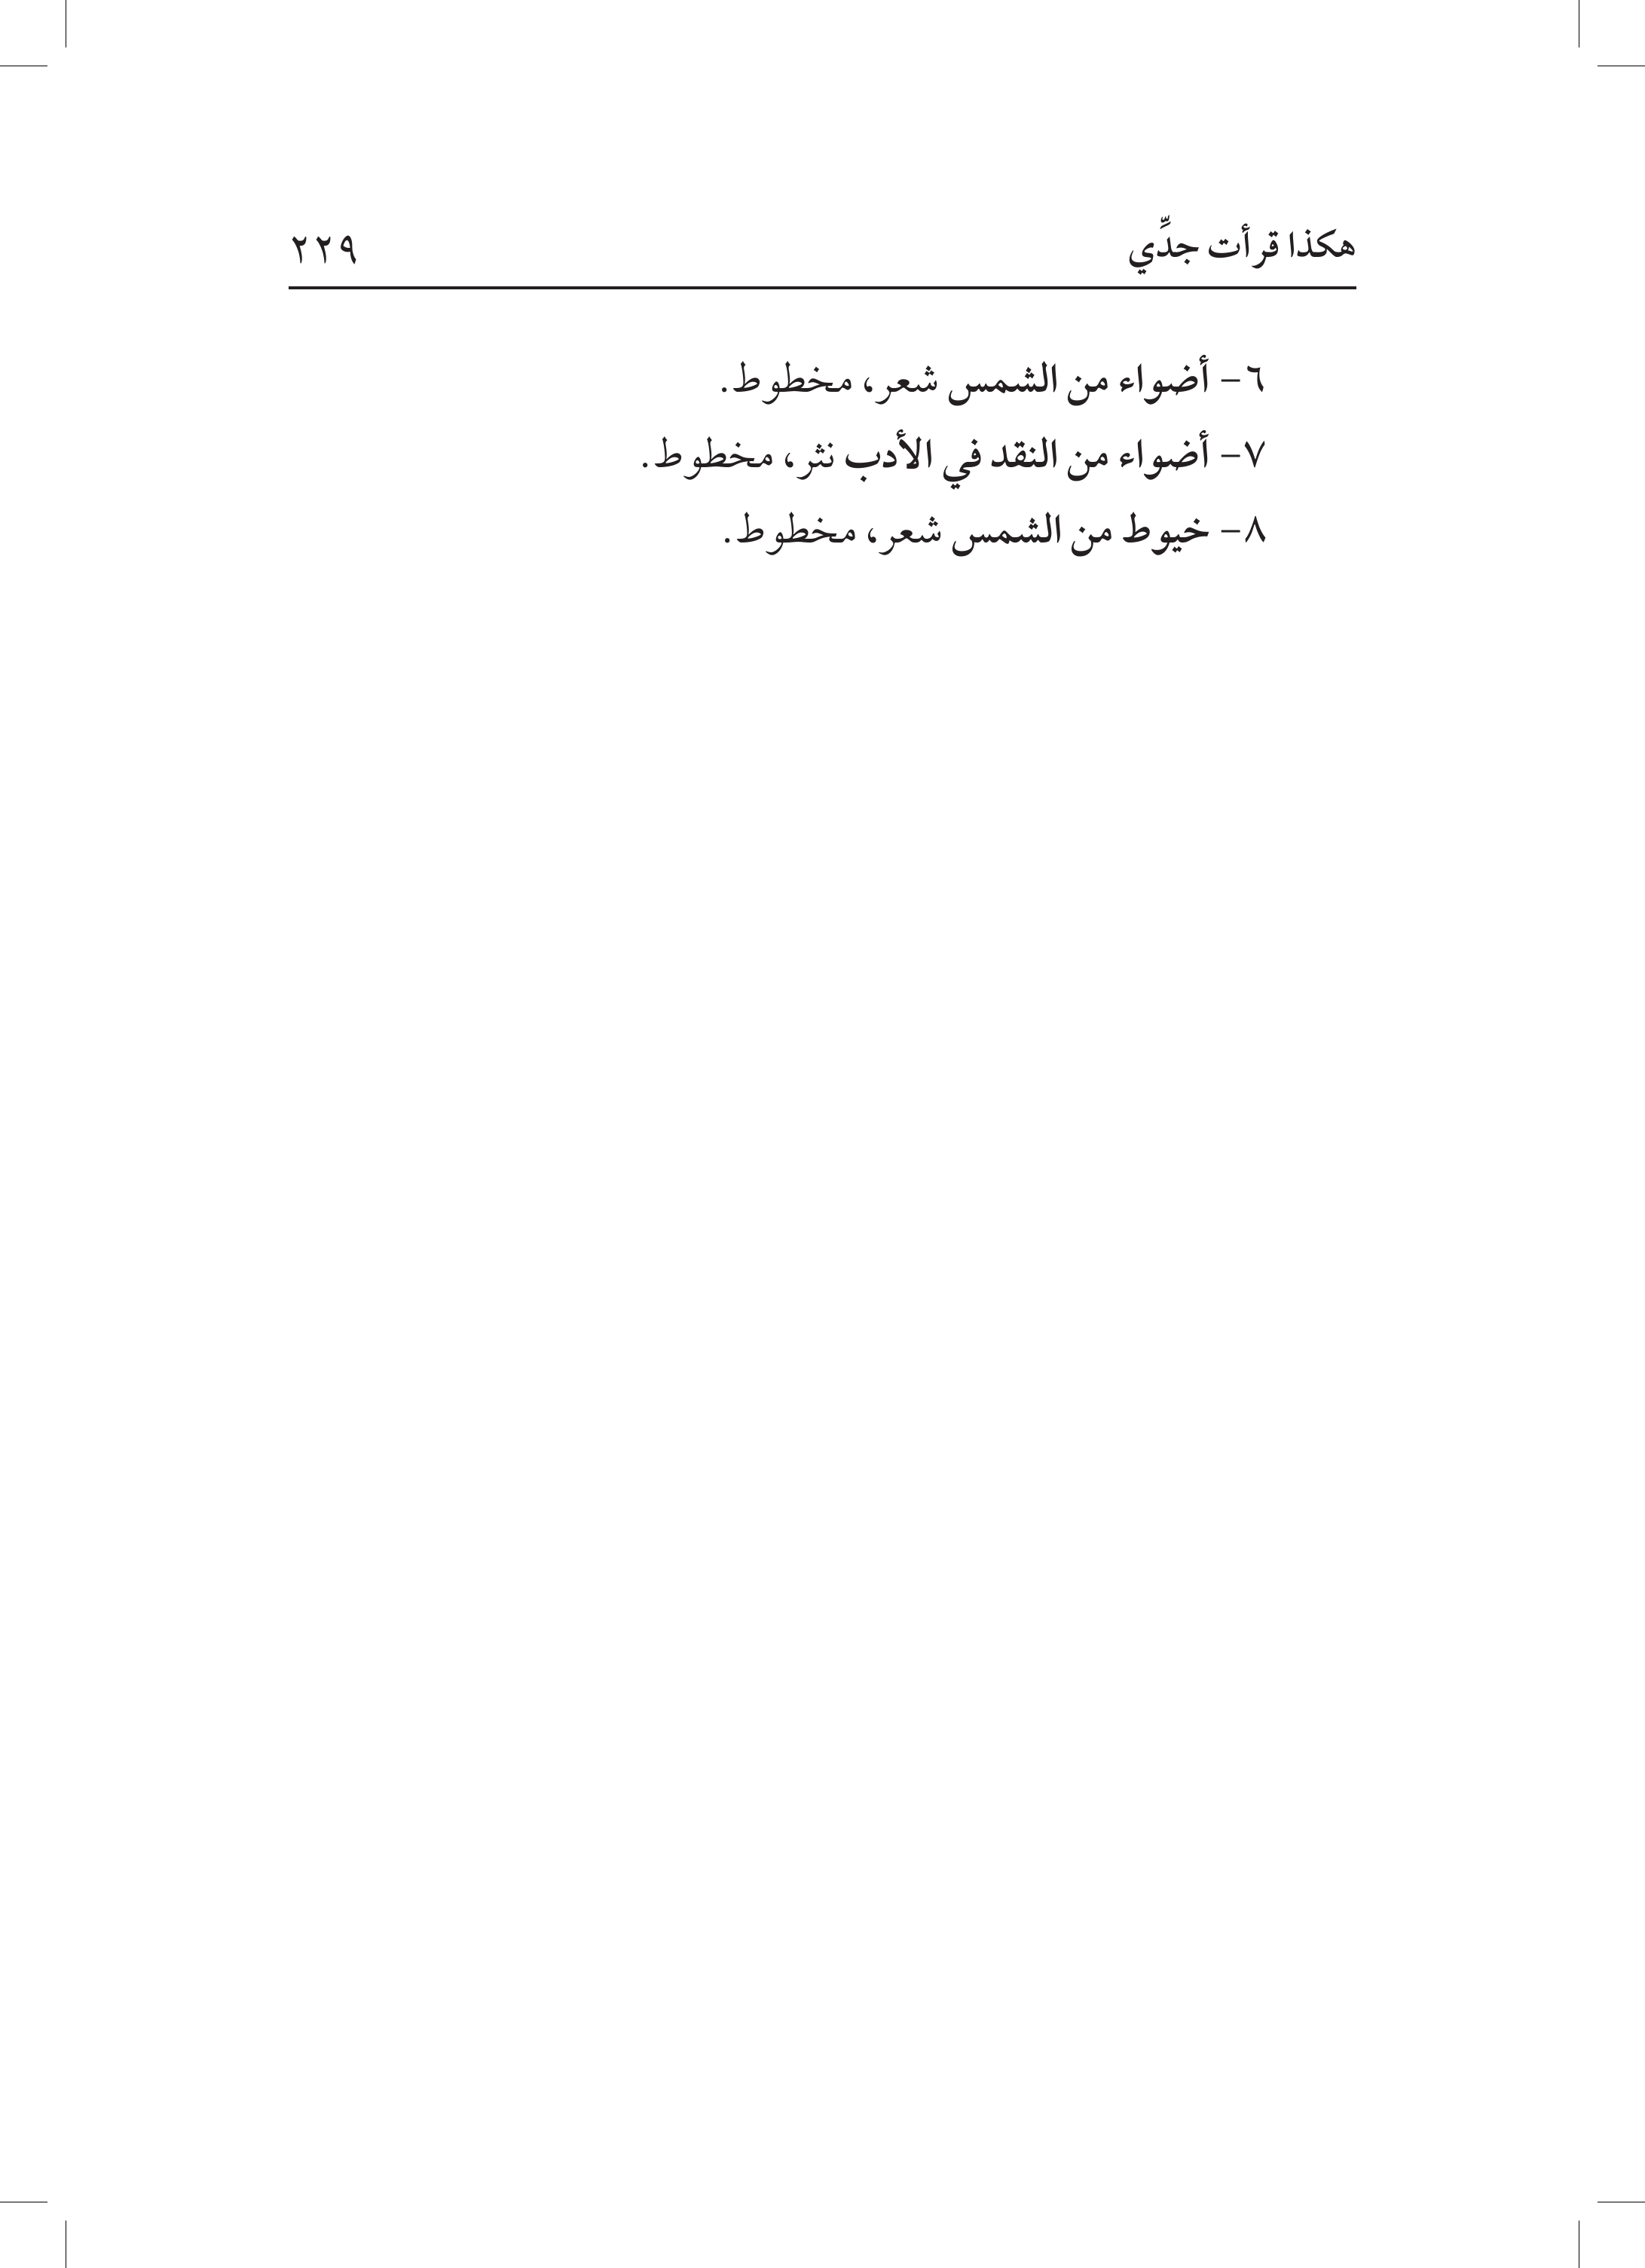 هكذا قرأت جدِّي ٢٢٩
٦- أضواء من الشمس شعر، مخطوط.
٧- أضواء من النقد في الأدب نثر، مخطوط.
٨- خيوط من الشمس شعر، مخطوط.